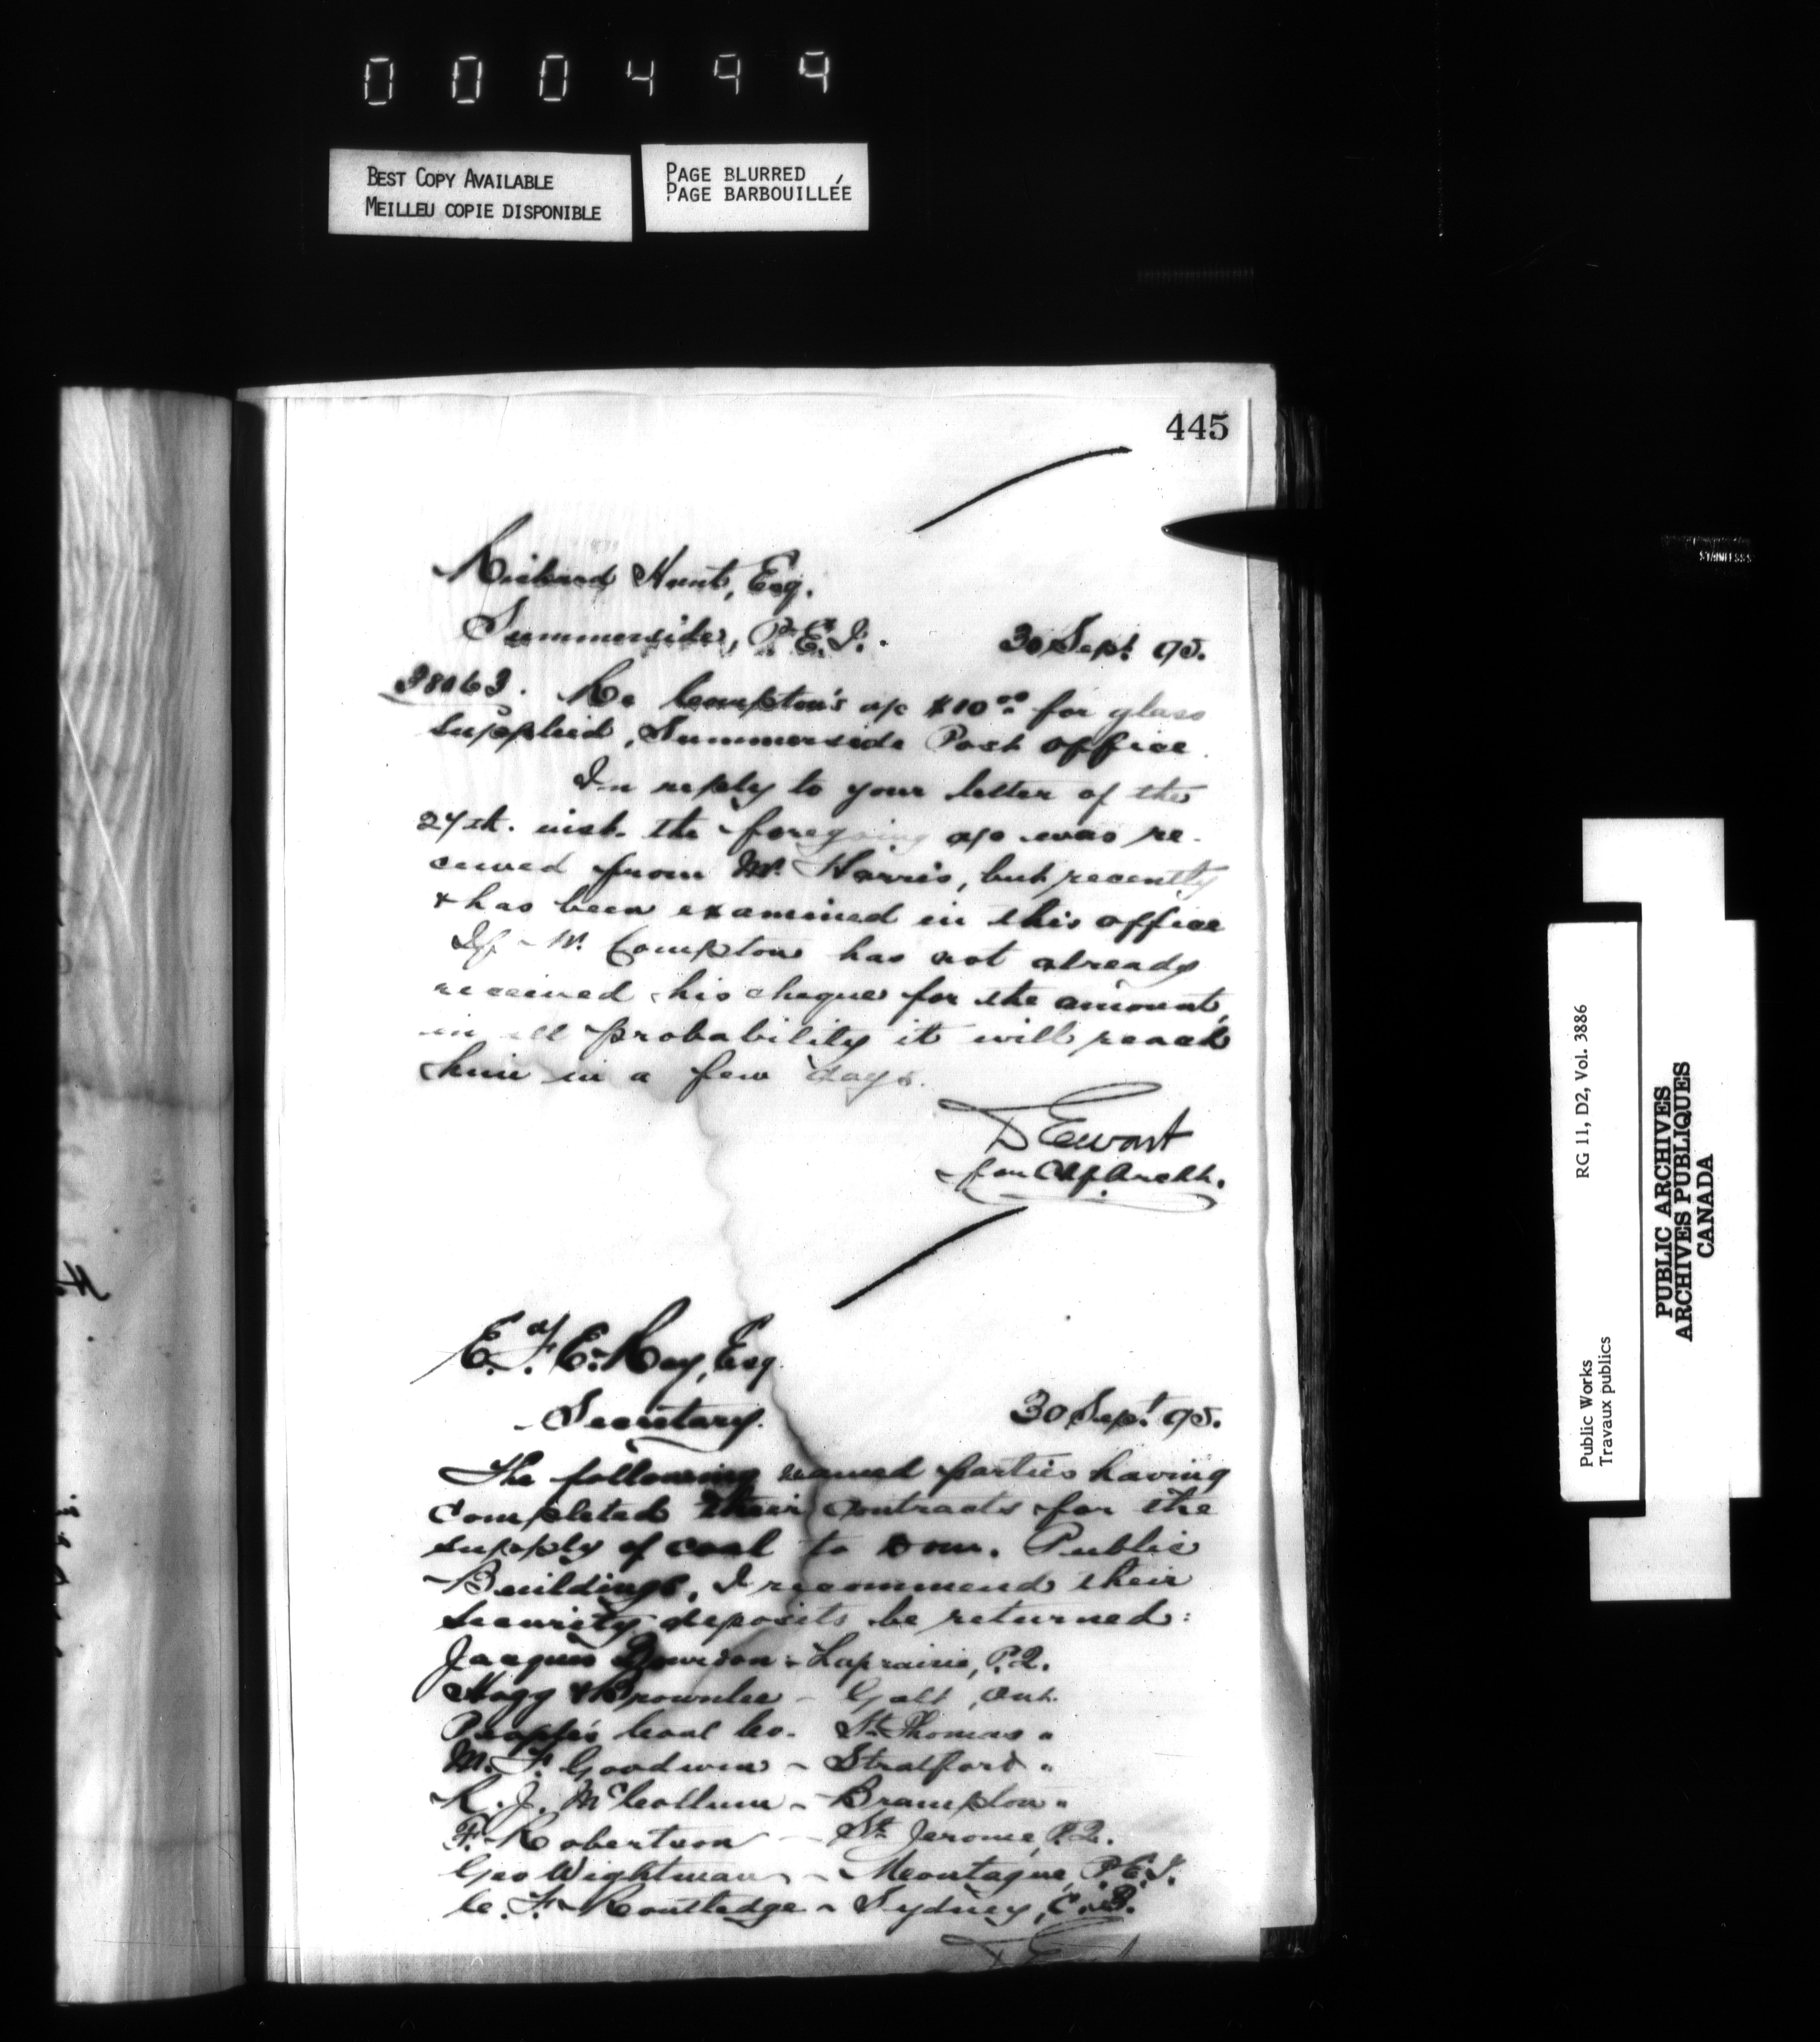 000499
BEST COPY AVAILABLE
MEILLEU COPIE DISPONIBLE
PAGE BLURRED
PAGE BARBOUILLÉE
445
Richard Hunt, Esq.
Summerside, P.E.I.
30 Sept. 95.
Re Compton's a/c $10.00 for glass
supplied, Summerside Post office.
In reply to your letter of the
27th. inst. the foregoing a/c was re-
ceived from Mr. Harris, but recently
& has been examined in this office
If Mr. Compton has not already
received his cheque for the amount,
in all probability it will reach
him in a few days.
D Ewart
for Chf. Archt.
E. F. E. Roy, Esq.
Secretary.
30 Sept. 95.
The following named parties having
completed their contracts for the
supply of coal to Dom. Public
Buildings, I recommend their
security deposits be returned:
Jacques Bourdon - Laprairie, P.Q.
Hogg & Brownlee - Galt, Ont.
People's Coal Co. St. Thomas "
M. F. Goodwin - Stratford "
R. J. McCollum - Brampton "
F. Robertson - St. Jerome, P.Q.
Geo Wightman - Montague, P.E.I.
C. F. Routledge - Sydney, C.B.
D Ewart
STAINLESS
Public Works
Travaux publics
RG 11, D2, Vol. 3886
PUBLIC ARCHIVES
ARCHIVES PUBLIQUES
CANADA